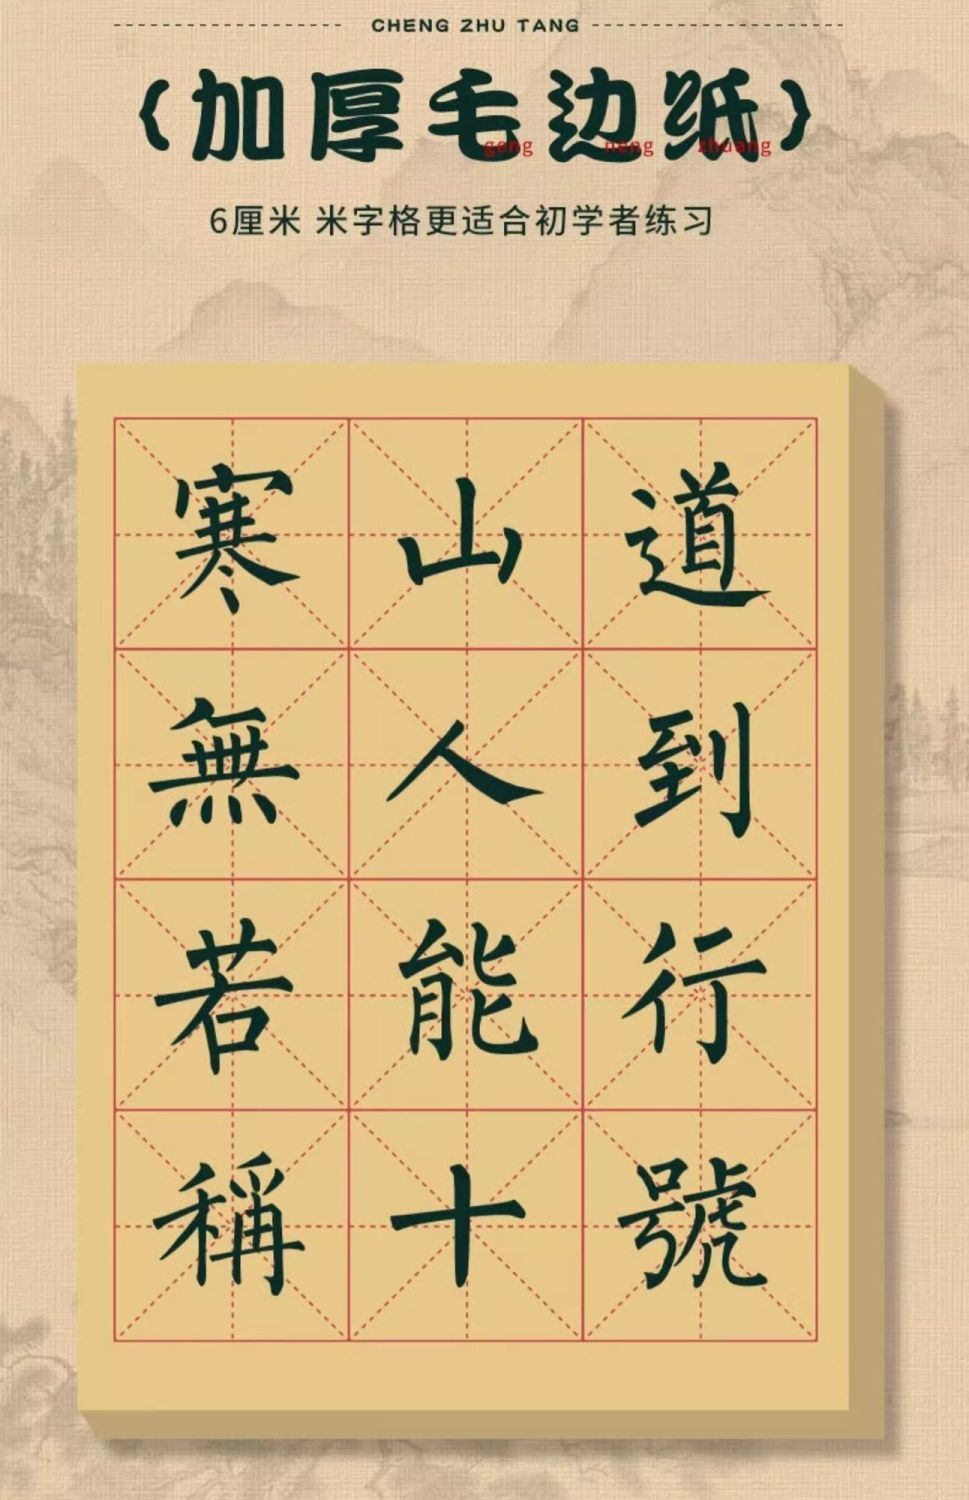 CHENG ZHU TANG
（加厚毛边纸）
geng neng zhuang
6厘米 米字格更适合初学者练习
寒山道
無人到
若能行
稱十號